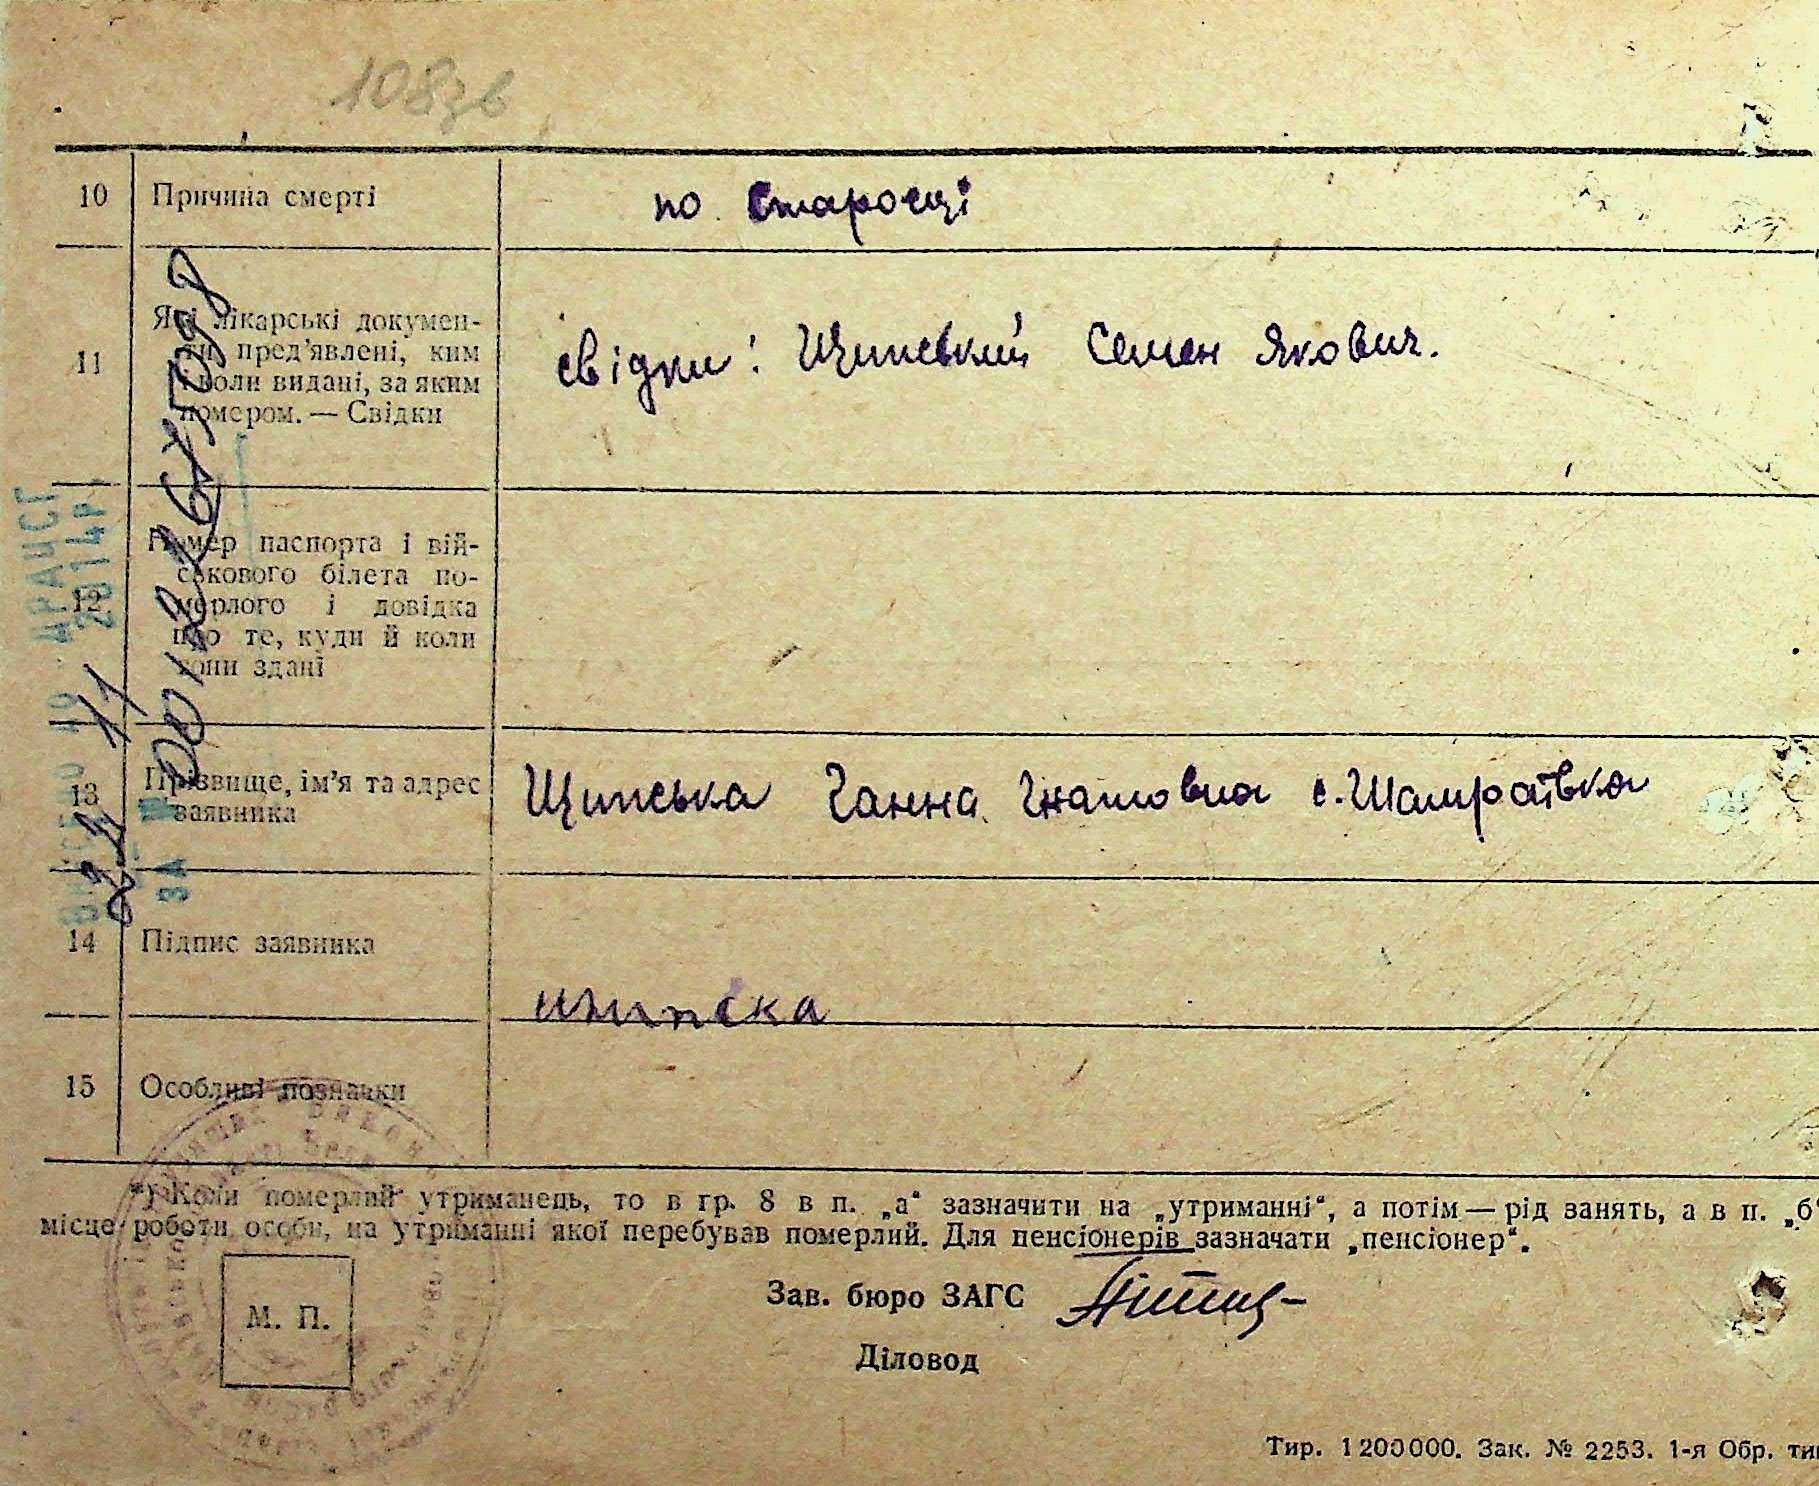 108зв
10 Причина смерті по старосці
11 Які лікарські докумен-
ти пред'явлені, ким
і коли видані, за яким
номером. — Свідки
свідки: Щипський Семен Якович.
12 Номер паспорта і вій-
ськового білета по-
мерлого і довідка
про те, куди й коли
вони здані
13 Прізвище, ім'я та адрес
заявника
Щипська Ганна Гнатовна с. Шамраївка
14 Підпис заявника
щипска
15 Особливі позначки
*) Коли померлий утриманець, то в гр. 8 в п. „а“ зазначити на „утриманні“, а потім — рід занять, а в п. „б“
місце роботи особи, на утриманні якої перебував померлий. Для пенсіонерів зазначати „пенсіонер“.
М. П.
Зав. бюро ЗАГС
Діловод
Тир. 1200000. Зак. № 2253. 1-я Обр. тип
ДРАЦСГ
2014р.
22 11
ЗА